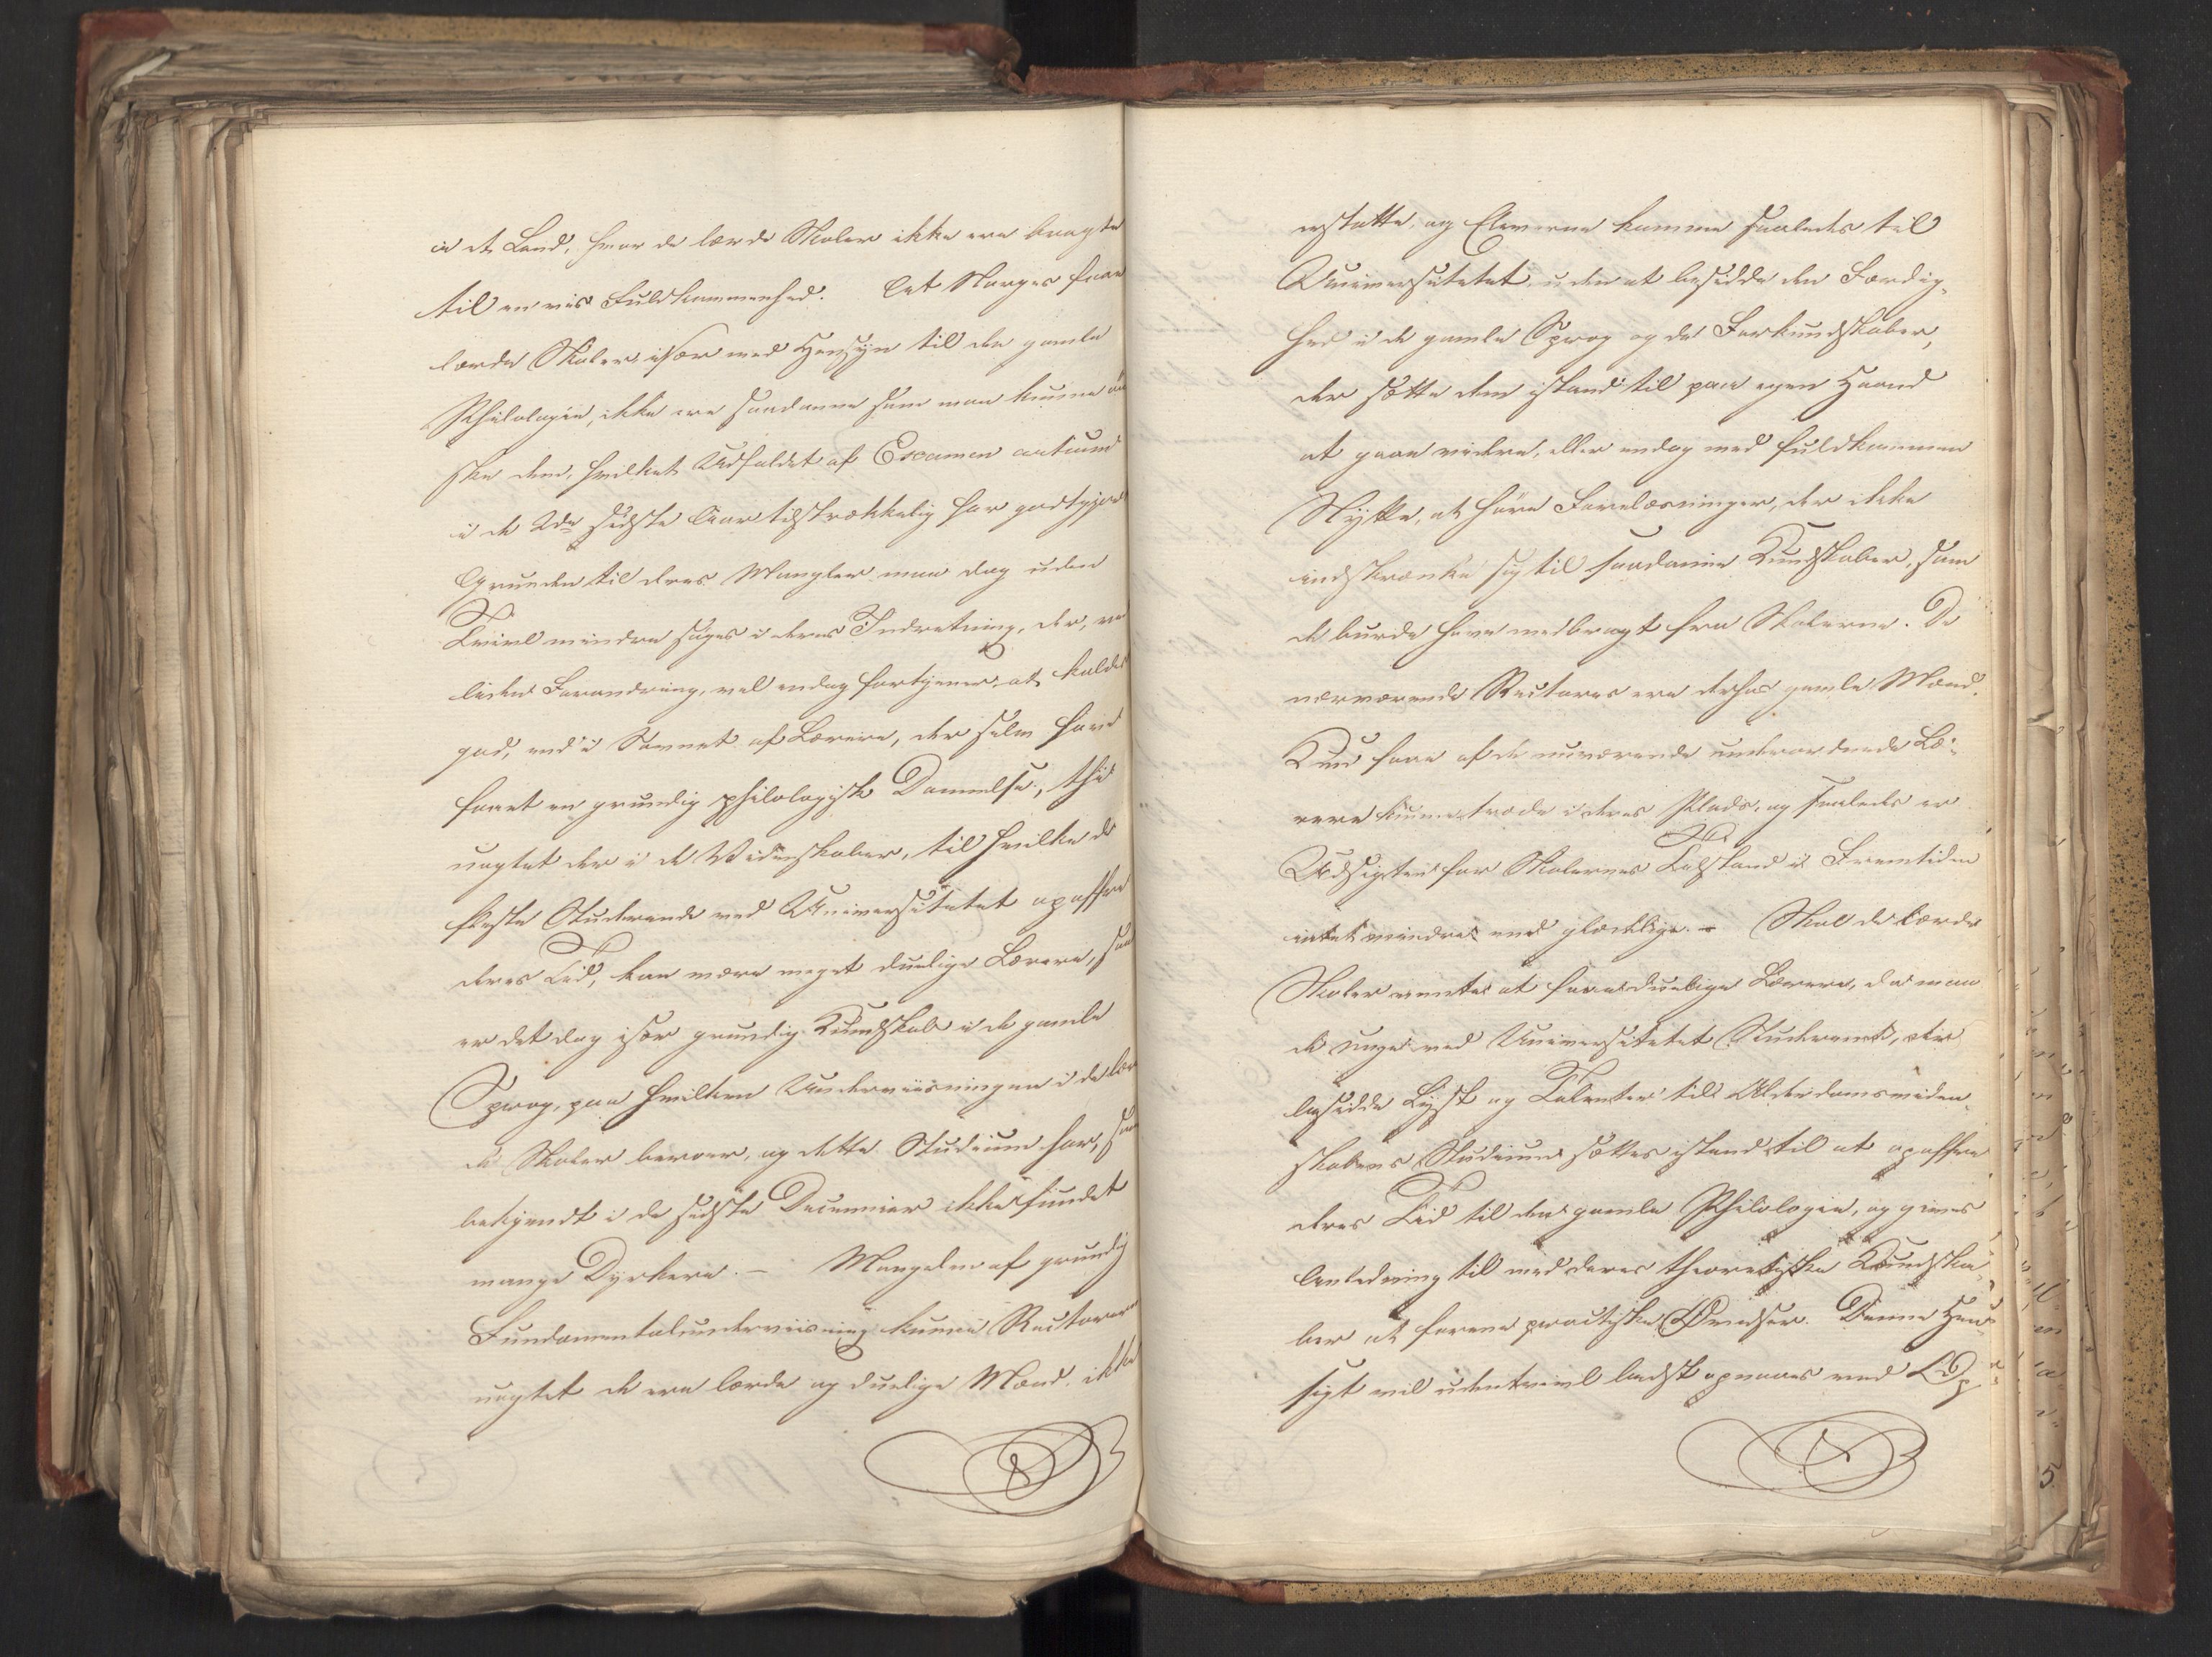 i et Land, hvor de lærde Skoler ikke ere bragte
til en vis Fuldkommenhed. At Norges faae
lærde Skoler, især med Hensyn til den gamle
Philologie, ikke ere saadanne som man kunne øn
ske dem, hvilket Udfaldet af Examen artium
i de 2de sidste Aar tilstrækkelig har godtgjort
Grunden til deres Mangler maa dog uden
Tvivl mindre søges i deres Indretning, der, ved
liden Forandring, vel endog fortjener, at kaldes
god, end i Savnet af Lærere, der selv have
faaet en grundig philologisk Dannelse, thi
uagtet der i de Videnskaber, til hvilke de
fleste Studerende ved Universitetet opoffre
deres Tid, kan være meget duelige Lærere, saa
er det dog især grundig Kundskab i de gamle
Sprog, paa hvilken Underviisningen i de lær
de Skoler beroer, og dette Studium har, som
bekjendt i de sidste Decennier ikke fundet
mange Dyrkere. – Mangelen af grundig
Fundamentalunderviisning kunne Rectorerne
uagtet de ere lærde og duelige Mænd, ikke
erstatte, og Eleverne komme saaledes til
Universitetet, uden at besidde den Færdig-
hed i de gamle Sprog og de Forkundskaber,
der sætte dem istand til paa egen Haand
at gaae videre, eller endog med fuldkommen
Nytte, at høre Forelæsninger, der ikke
indskrænke sig til saadanne Kundskaber, som
de burde have medbragt fra Skolerne. De
nærværende Rectorer ere derhos gamle Mænd.
Kun faae af de nuværende underordnede Læ-
rere kunne træde i deres Plads, og saaledes er
Udsigten for Skolernes Tilstand i Fremtiden
intet mindre end glædelig. – Skal de lærde
Skoler vente at faae duelige Lærere, da maa
de unge ved Universitetet Studerende, der
besidde Lyst og Talenter til Alderdomsviden-
skabens Studium sættes istand til at opoffre
deres Tid til den gamle Philologie, og gives
Anledning til med deres theoretiske Kundska-
ber at forene practiske Øvelser. Denne Hen-
sigt vil udentvivl bedst opnaaes ved Op